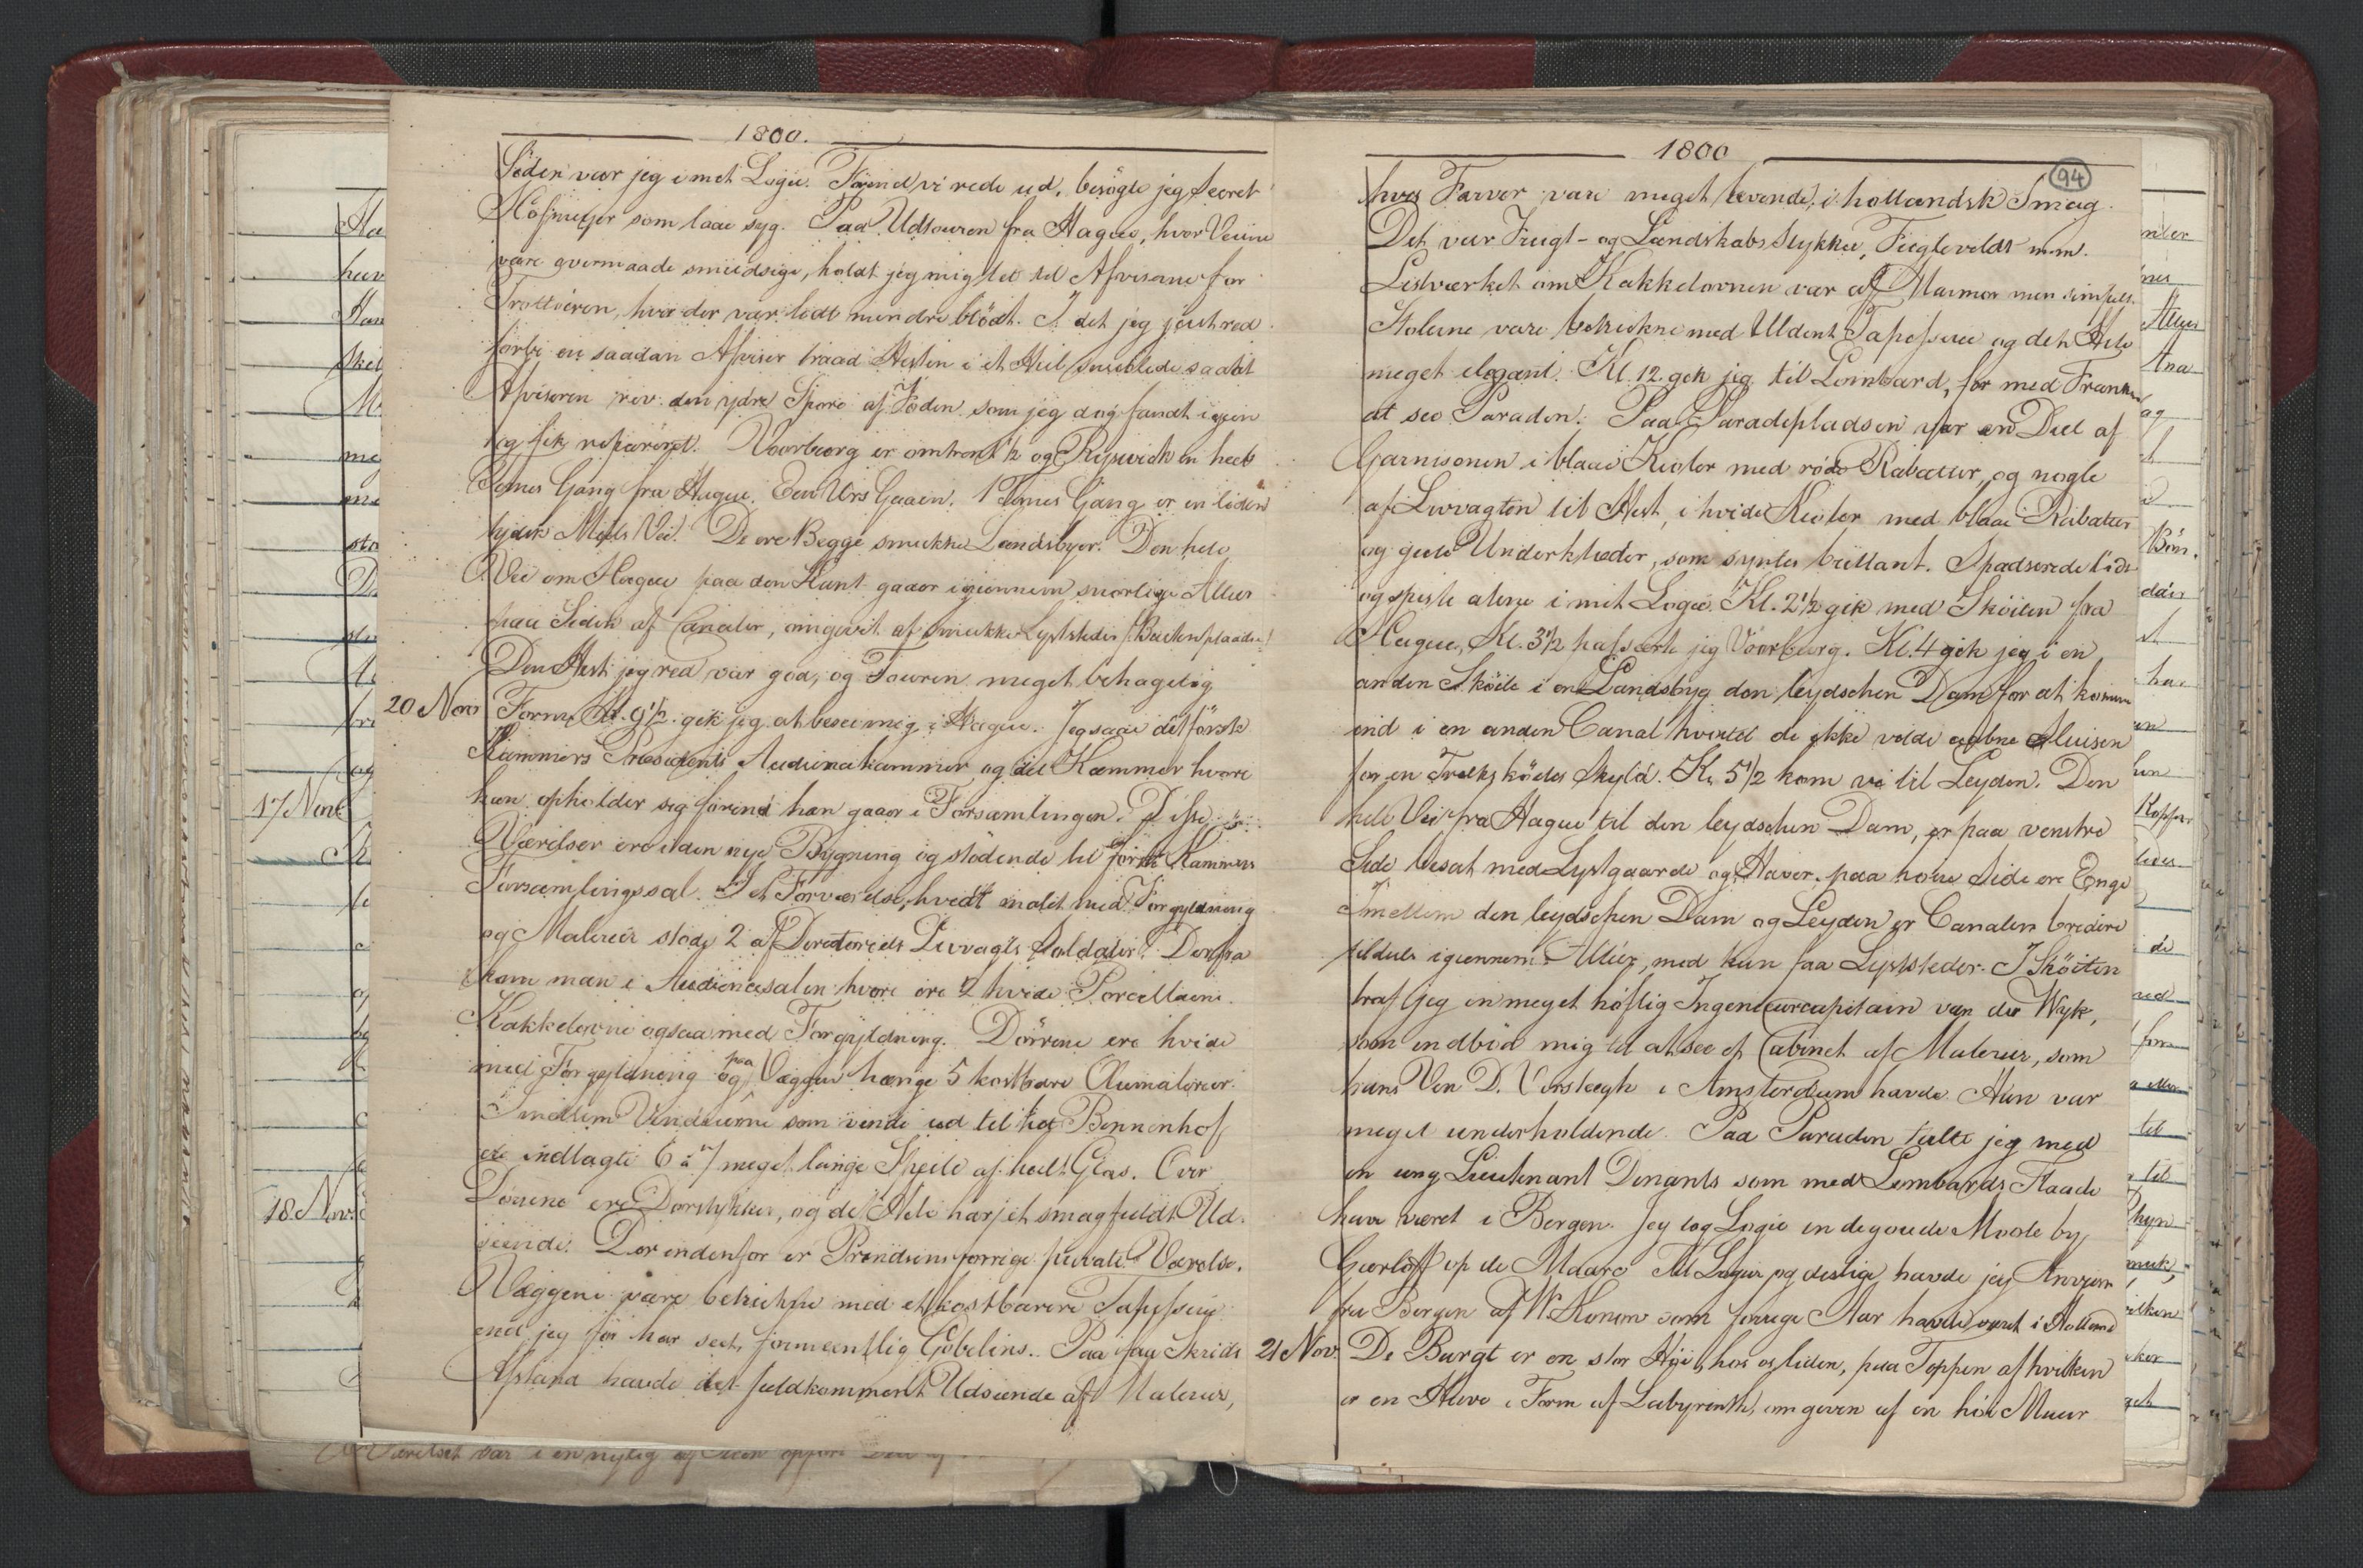 1800.
Siden var jeg i mit Logie. Förend vi rede ud, besögte jeg Secret
som laae syg. Paa Udtouren fra Hague, hvor Veiene
vare overmaade smudsige, holdt jeg mig tæt til Afviserne for
Trottoiren, hvor der var lidt mindre blödt. I det jeg just red
forbi en saadan Afviser traad Hesten i et Hul snublede saa at
Afviseren rev den ydre Spore af Foden som jeg dog fandt igien
og fik repareret. Voorburg er omtrent ½ og Ryswick en heel
Times Gang fra Hague. Een Urs Gaaen. 1 Times Gang er en liden
tydsk Miils Vei. De ere Begge smukke Landsbyer. Den hele
Vei om Hague paa den Kant gaaer igiennem snorlige Alleer
paa Siden af Canaler, omgivet af smukke Lyststeder (Buitenplaadse)
Den Hest jeg red var god, og Touren meget behagelig
20 Nov Form. Kl. 9½ gik jeg at besee mig i Hague. Jeg saae det förste
Kammers Præsidents Audiencekammer og det Kammer hvori
han opholder sig förend han gaaer i Forsamlingen. Disse
Værelser ere i den nye Bygning og stödende til förste Kammers
Forsamlingssal. I et Forværelse, hvidt malet med Forgyldning
og Malerier stode 2 af Directoriets Livvagts Soldater. Derfra
kom man i Audiencesalen hvori ere 2 hvide Porcellains
Kakkelovne ogsaa med Forgyldning. Dörrene ere hvide
med Forgyldning og paa Væggen hænge 5 kostbare
Imellem Vinduerne som vende ud til het Binnenhof
ere indlagte 6 à 7 meget lange Speile af heelt Glas. Over
Dörrene ere Dorstykker, og det Hele har et smagfuldt Ud-
seende. Der indenfor er Prindsens forrige private Værelse.
Væggene vare betrukne med et kostbarere Tapesserie
end jeg för har seet, formeentlig Gobelins. Paa faa Skridts
Afstand havde det fuldkomment Udseende af Malerier,
1800
94
hvis Farver vare meget levende, i hollandsk Smag.
Det var Frugt- og Landskabs Stykker, Fuglevildt m.m.
Listværket om Kakkelovnen var af Marmor men simpelt.
Stolene vare betrukne med Uldent Tapesserie og det Hele
meget elegant. Kl. 12 gik jeg til Lombard, for med
at see Paraden. Paa Paradepladsen var en Deel af
Garnisonen i blaae Kioler med röde Rabatter, og nogle
af Livvagten til Hest, i hvide Kioler med blaae Rabatter
og gule Underklæder, som syntes brillant. Spadserede lidt
og spiste alene i mit Logie. Kl. 2½ gik med Skoiten fra
Hague, Kl. 3½ passerte jeg Voorburg. Kl. 4 gik jeg i en
anden Sköite i en Landsbye den leydschen Dam for at komme
ind i en anden Canal hvortil de ikke vilde aabne Slusen
for en Trekskoites Skyld. Kl. 5½ kom vi til Leyden. Den
hele Vei fra Hague til den leydschen Dam, er paa venstre
Side besat med Lystgaarde og Haver, paa höire Side ere Enge
Imellem den leydschen Dam og Leyden er Canalen bredere
igiennem Alleer, med kun faa Lyststeder. I Sköiten
traf jeg en meget höflig Ingenieurcapitain van der Wyk,
som indböd mig til at see et Cabinet af Malerier, som
hans Ven D. Versteegh i Amsterdam havde. Han var
meget underholdende. Paa Paraden talte jeg med
en ung Lieutenant Dingants som med Lombards Flaade
have været i Bergen. Jeg tog Logie in de goude Moole by
Gierloff op de Maare. Til Logie og deslige havde jeg Anviisn
fra Bergen af W. Konow som forrige Aar havde været i Holland
21 Nov. De Burgt er en stor Höi, hos os liden, paa Toppen af hvilken
er en Have i Form af Labyrinth, omgiven af en höi Muur
17 Nov
18 Nov.